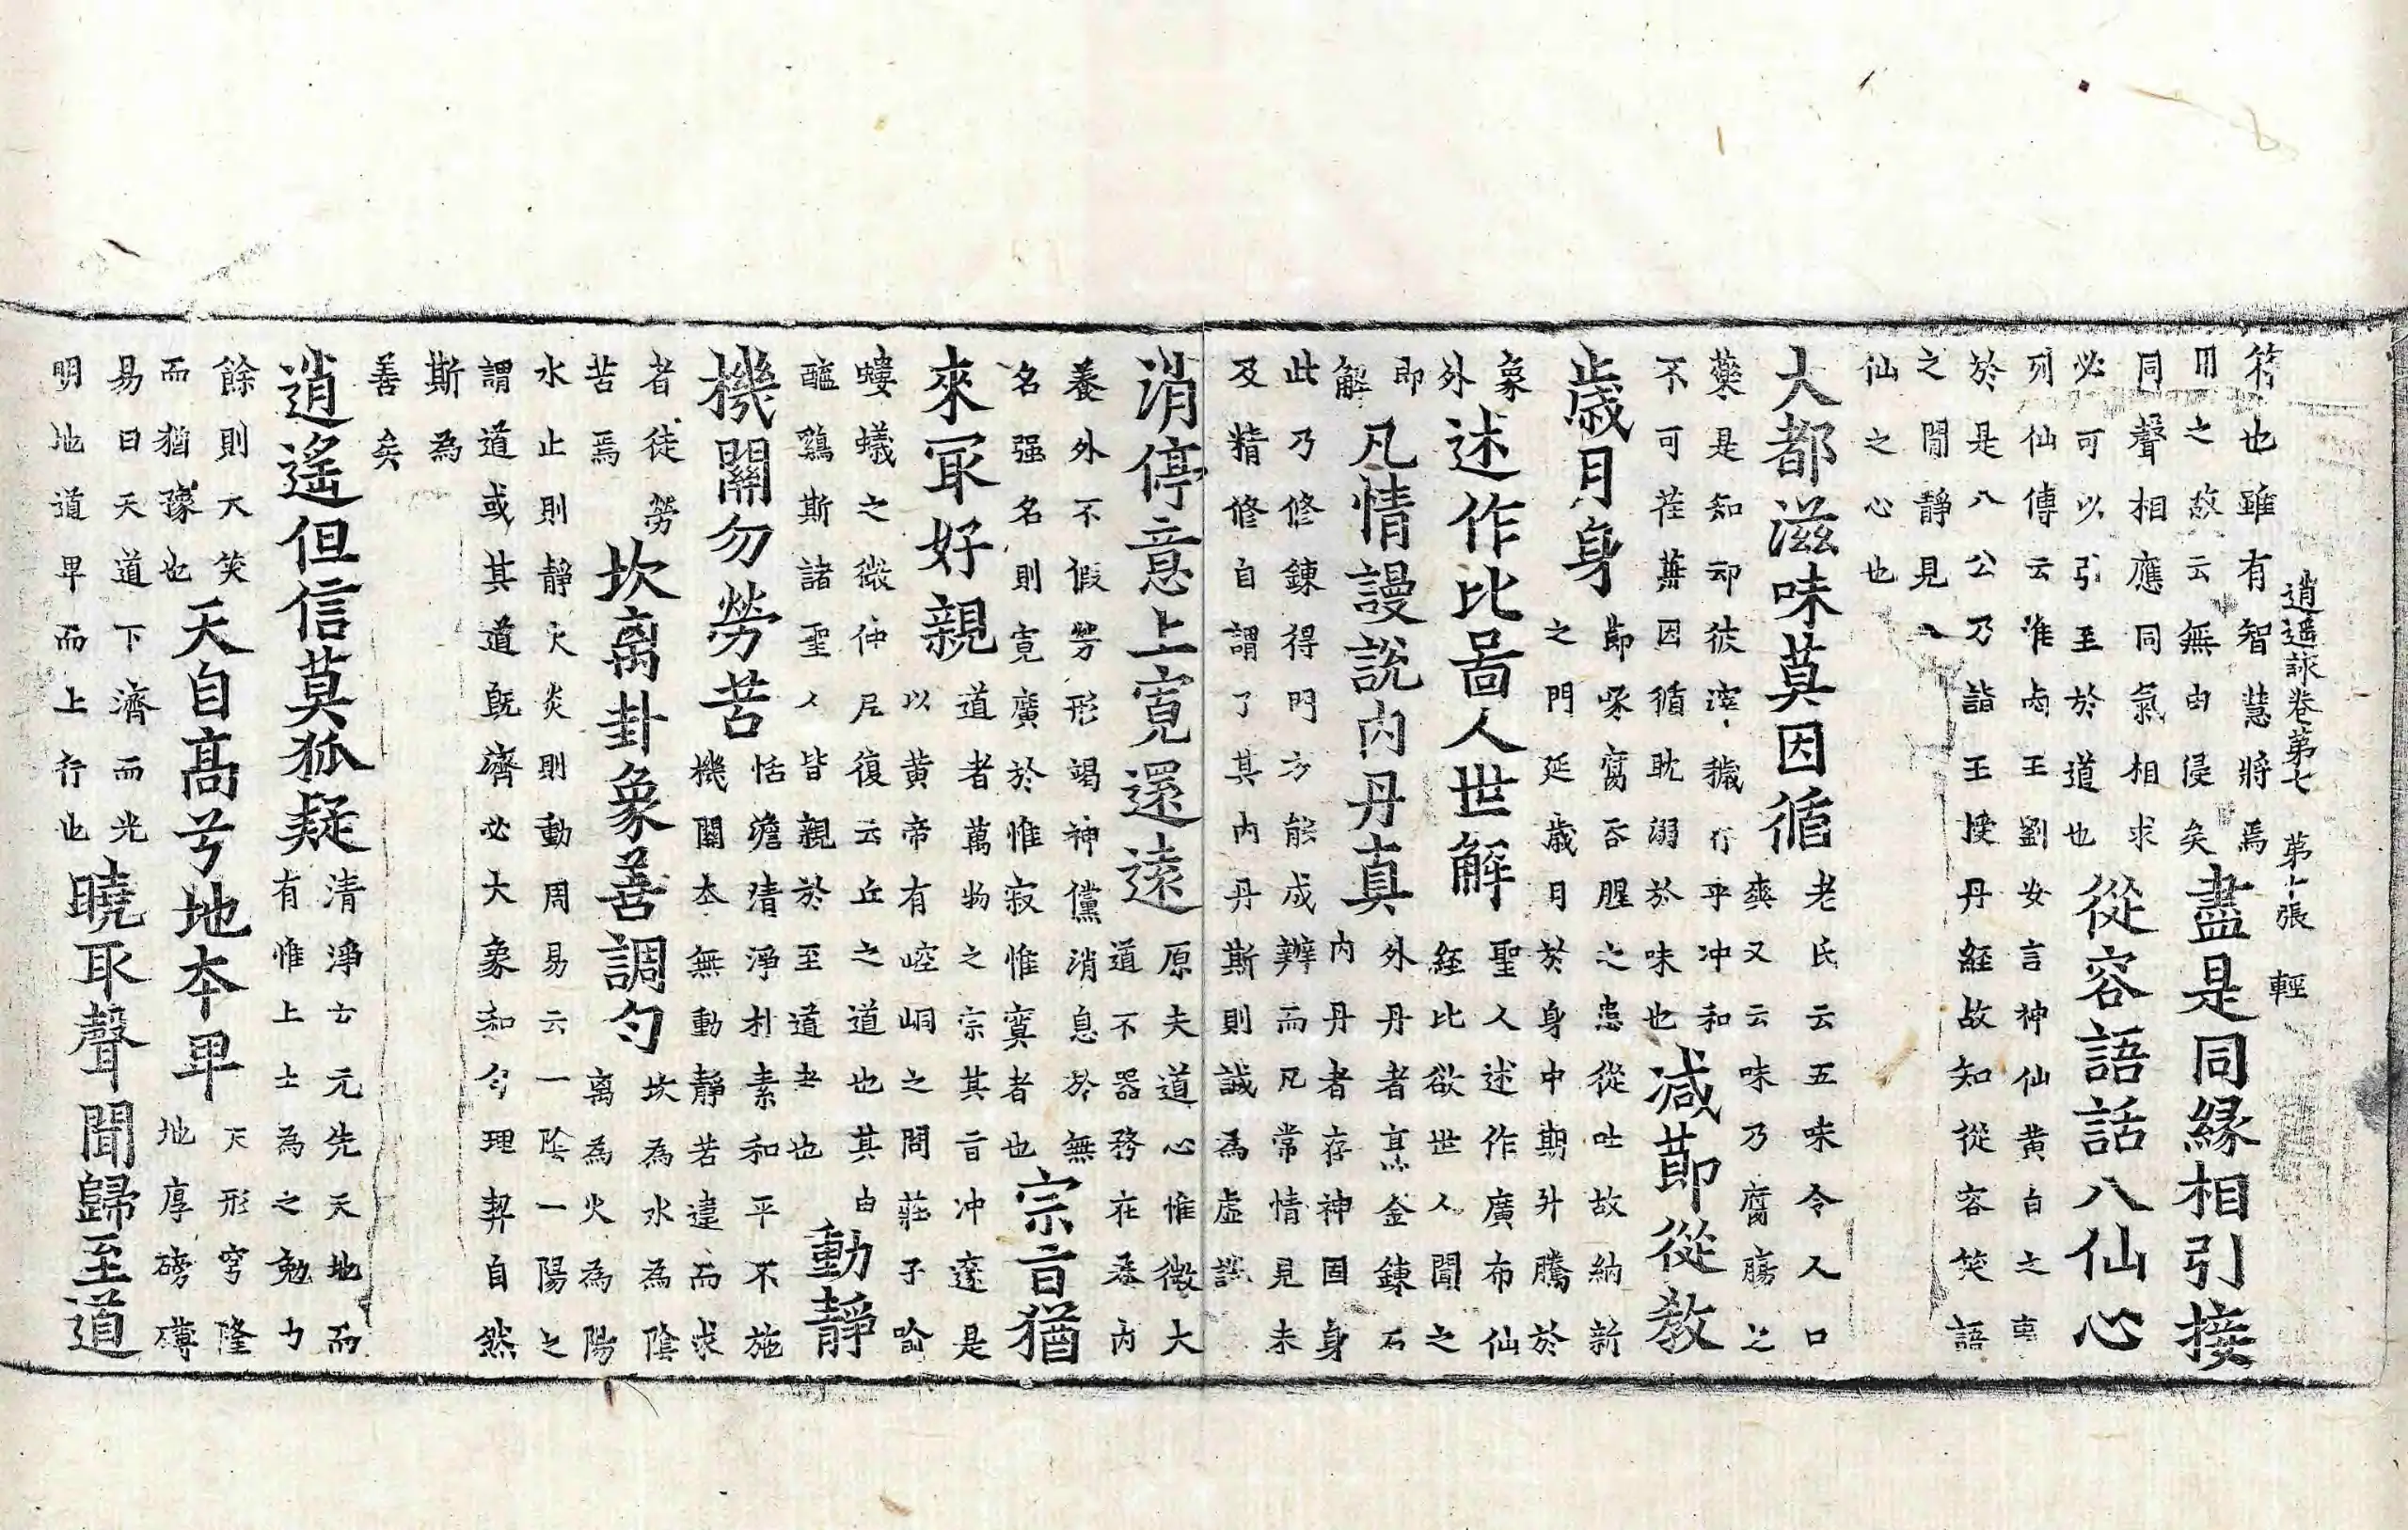 逍遥詠卷第七　第十張　輕
符也雖有智慧將焉
用之故云無由侵矣
盡是同緣相引接
同聲相應同氣相求
必可以引至於道也
從容語話八仙心
列仙傳云淮南王劉安言神仙黃白之事
於是八公乃詣王授丹経故知從容笑語
之閒靜見八
仙之心也
大都滋味莫因循
老氏云五味令人口
爽又云味乃腐腸之
藥是知却彼滓穢行乎冲和
不可荏苒因循耽溺於味也
減節從教
歲月身
節啄腐吞腥之患從吐故納新
之門延歲月於身中期升騰於
象
外
述作比啚人世解
聖人述作廣布仙
経比欲世人聞之
即
解
凡情謾說內丹真
外丹者烹金鍊石
內丹者存神固身
此乃修鍊得門方能成辦而凡常情見未
及精修自謂了其內丹斯則誠為虛誑
消停意上寬還遠
原夫道心惟微大
道不器務在养內
養外不假勞形竭神儻消息於無
名强名名則寬廣於惟寂惟寞者也
宗旨猶
來冣好親
道者萬物之宗其旨冲邃是
以黃帝有崆峒之問莊子喻
螻蟻之微仲尼復云丘之道也其由
醯鷄斯諸聖人皆親於至道者也
動靜
機關勿勞苦
恬澹清淨朴素和平不施
機關本無動靜若違而求
者徒勞
苦焉
坎离卦象善調勻
坎為水為陰
离為火為陽
水止則靜火炎則動周易云一陰一陽之
謂道或其道旣濟必大象和勻理契自然
斯為
善矣
逍遙但信莫狐疑
清淨士元先天地而
有惟上士為之勉力
餘則大笑
而猶豫也
天自高兮地本卑
天形穹隆
地厚磅礴
易曰天道下濟而光
明地道卑而上行也
曉取聲聞歸至道